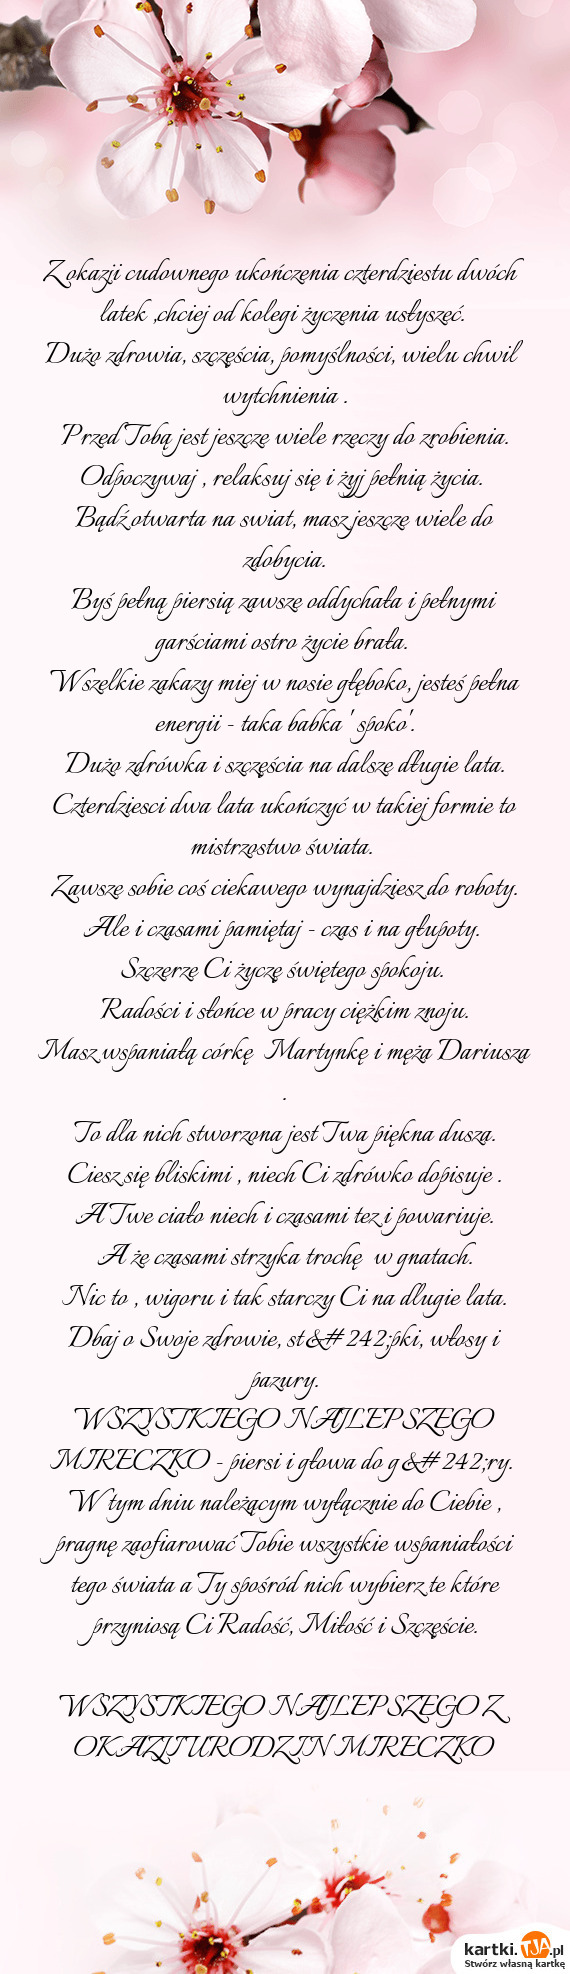 Z okazji cudownego ukończenia czterdziestu dwóch
latek ,chciej od kolegi życzenia usłyszeć.
Dużo zdrowia, szczęścia, pomyślności, wielu chwil
wytchnienia .
Przed Tobą jest jeszcze wiele rzeczy do zrobienia.
Odpoczywaj , relaksuj się i żyj pełnią życia.
Bądź otwarta na swiat, masz jeszcze wiele do
zdobycia.
Byś pełną piersią zawsze oddychała i pełnymi
garściami ostro życie brała.
Wszelkie zakazy miej w nosie głęboko, jesteś pełna
energii - taka babka ' spoko'.
Dużo zdrówka i szczęścia na dalsze długie lata.
Czterdziesci dwa lata ukończyć w takiej formie to
mistrzostwo świata.
Zawsze sobie coś ciekawego wynajdziesz do roboty.
Ale i czasami pamiętaj - czas i na głupoty.
Szczerze Ci życzę świętego spokoju.
Radości i słońce w pracy ciężkim znoju.
Masz wspaniałą córkę  Martynkę i męża Dariusza
.
To dla nich stworzona jest Twa piękna dusza.
Ciesz się bliskimi , niech Ci zdrówko dopisuje .
A Twe ciało niech i czasami tez i powariuje.
A że czasami strzyka trochę  w gnatach.
Nic to , wigoru i tak starczy Ci na dlugie lata.
Dbaj o Swoje zdrowie, st&#242;pki, włosy i
pazury.
WSZYSTKIEGO NAJLEPSZEGO
MIRECZKO - piersi i głowa do g&#242;ry.
W tym dniu należącym wyłącznie do Ciebie ,
pragnę zaofiarować Tobie wszystkie wspaniałości
tego świata a Ty spośród nich wybierz te które
przyniosą Ci Radość, Miłość i Szczęście.
WSZYSTKIEGO NAJLEPSZEGO Z
OKAZJI URODZIN MIRECZKO
kartki.TJA.pl
Stwórz własną kartkę